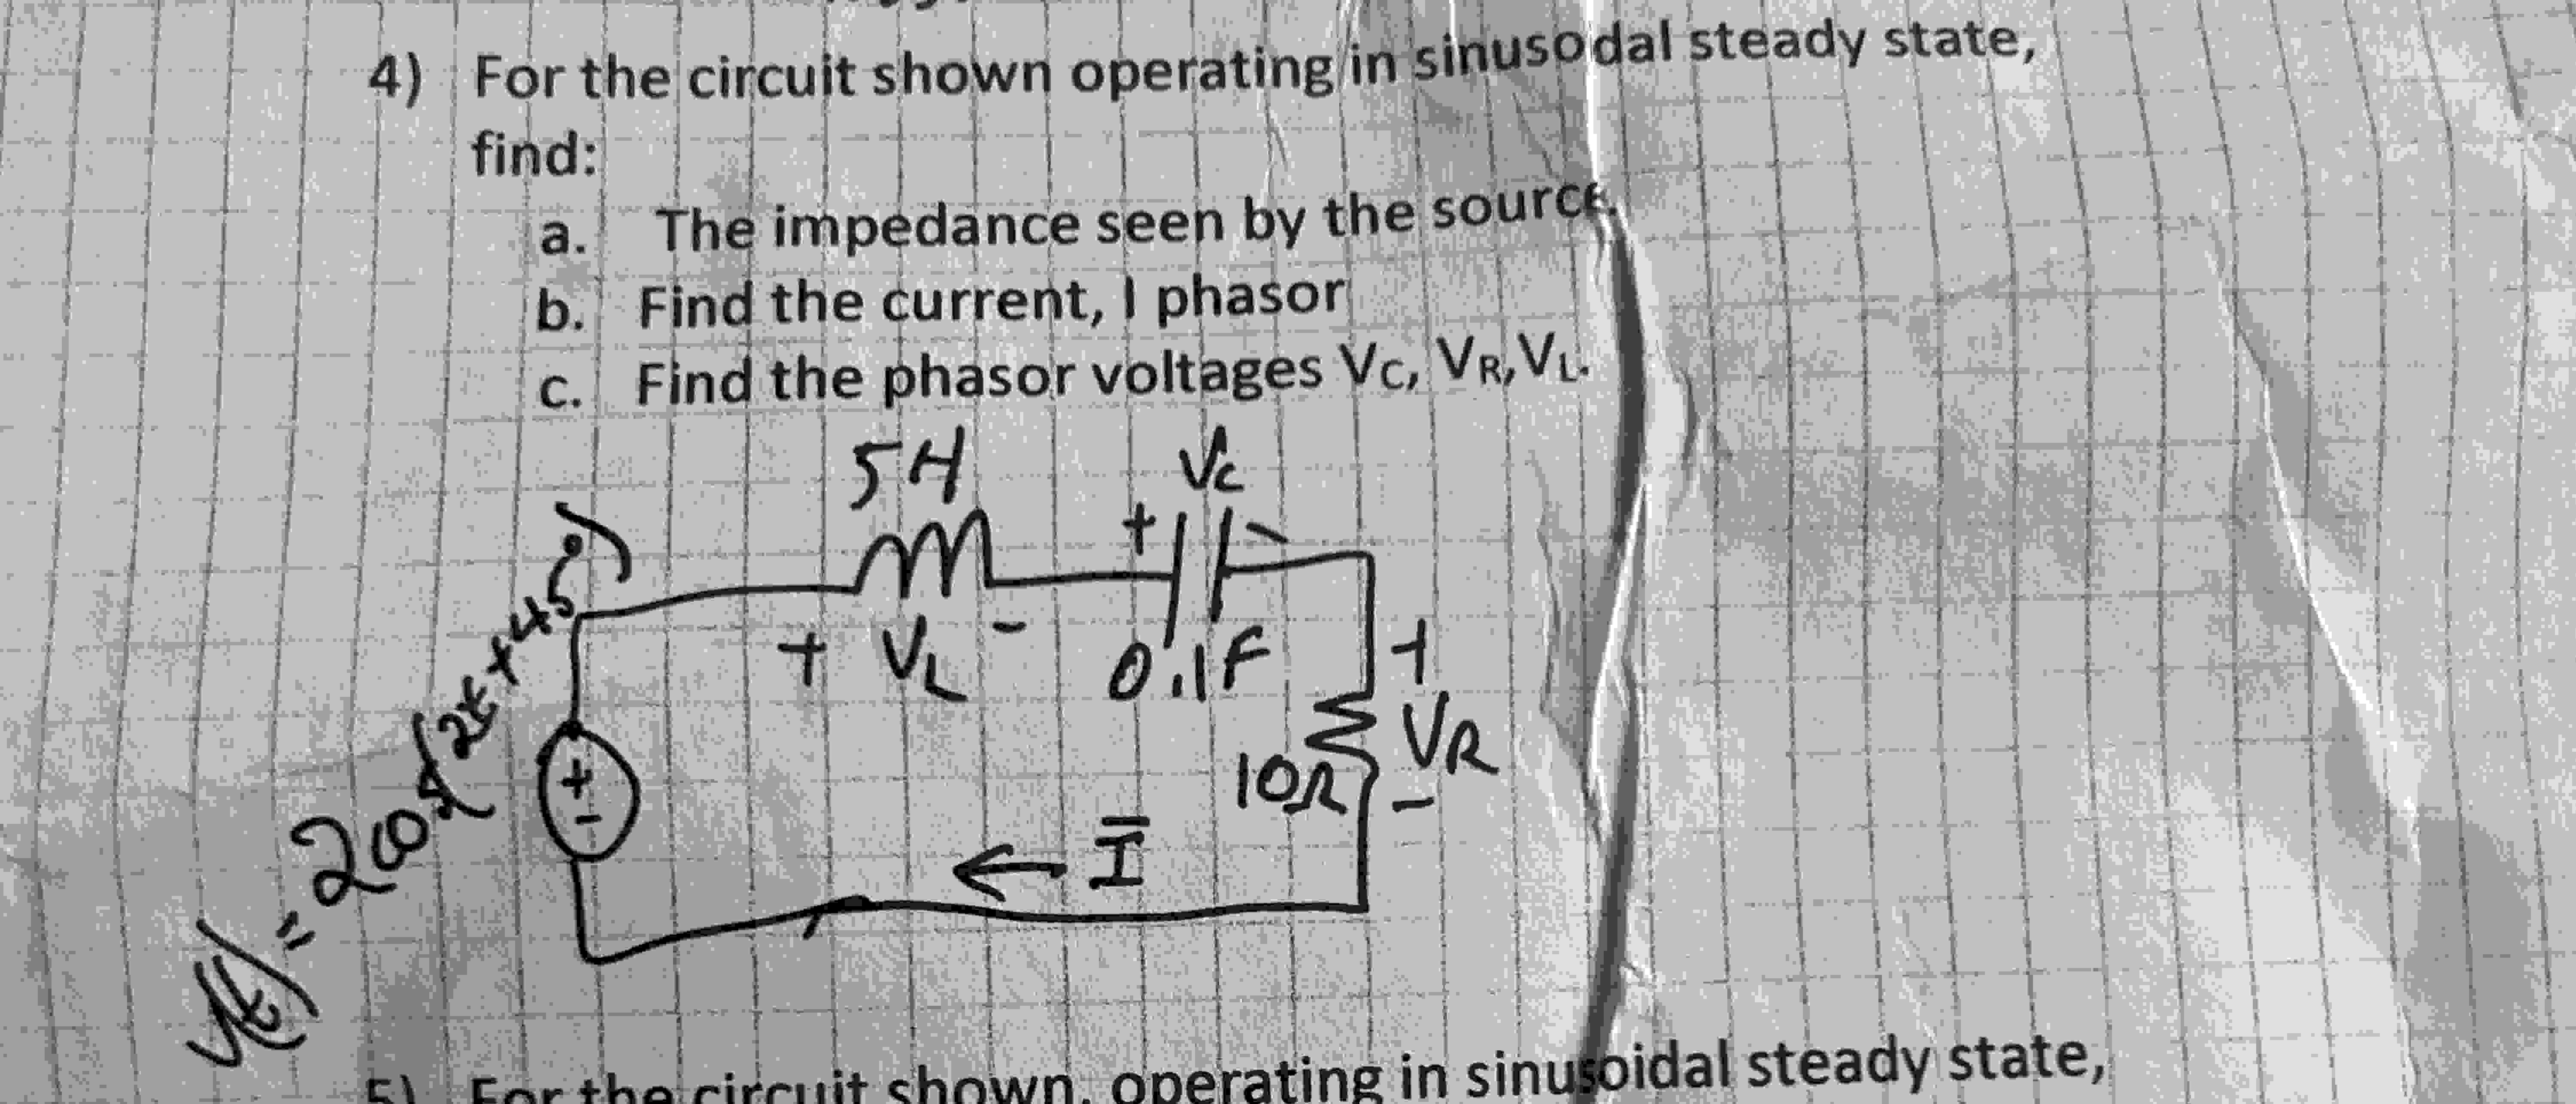 4) For the circuit shown operating in sinusodal steady state,
find:
a. The impedance seen by the source.
b. Find the current, I phasor
c. Find the phasor voltages VC, VR, VL.
5H
Vc
+ -
+ VL -
0.1F
+
VR
-
10Ω
+
-
← Ī
V(t) = 2cos(2t + 45°)
5) For the circuit shown, operating in sinusoidal steady state,